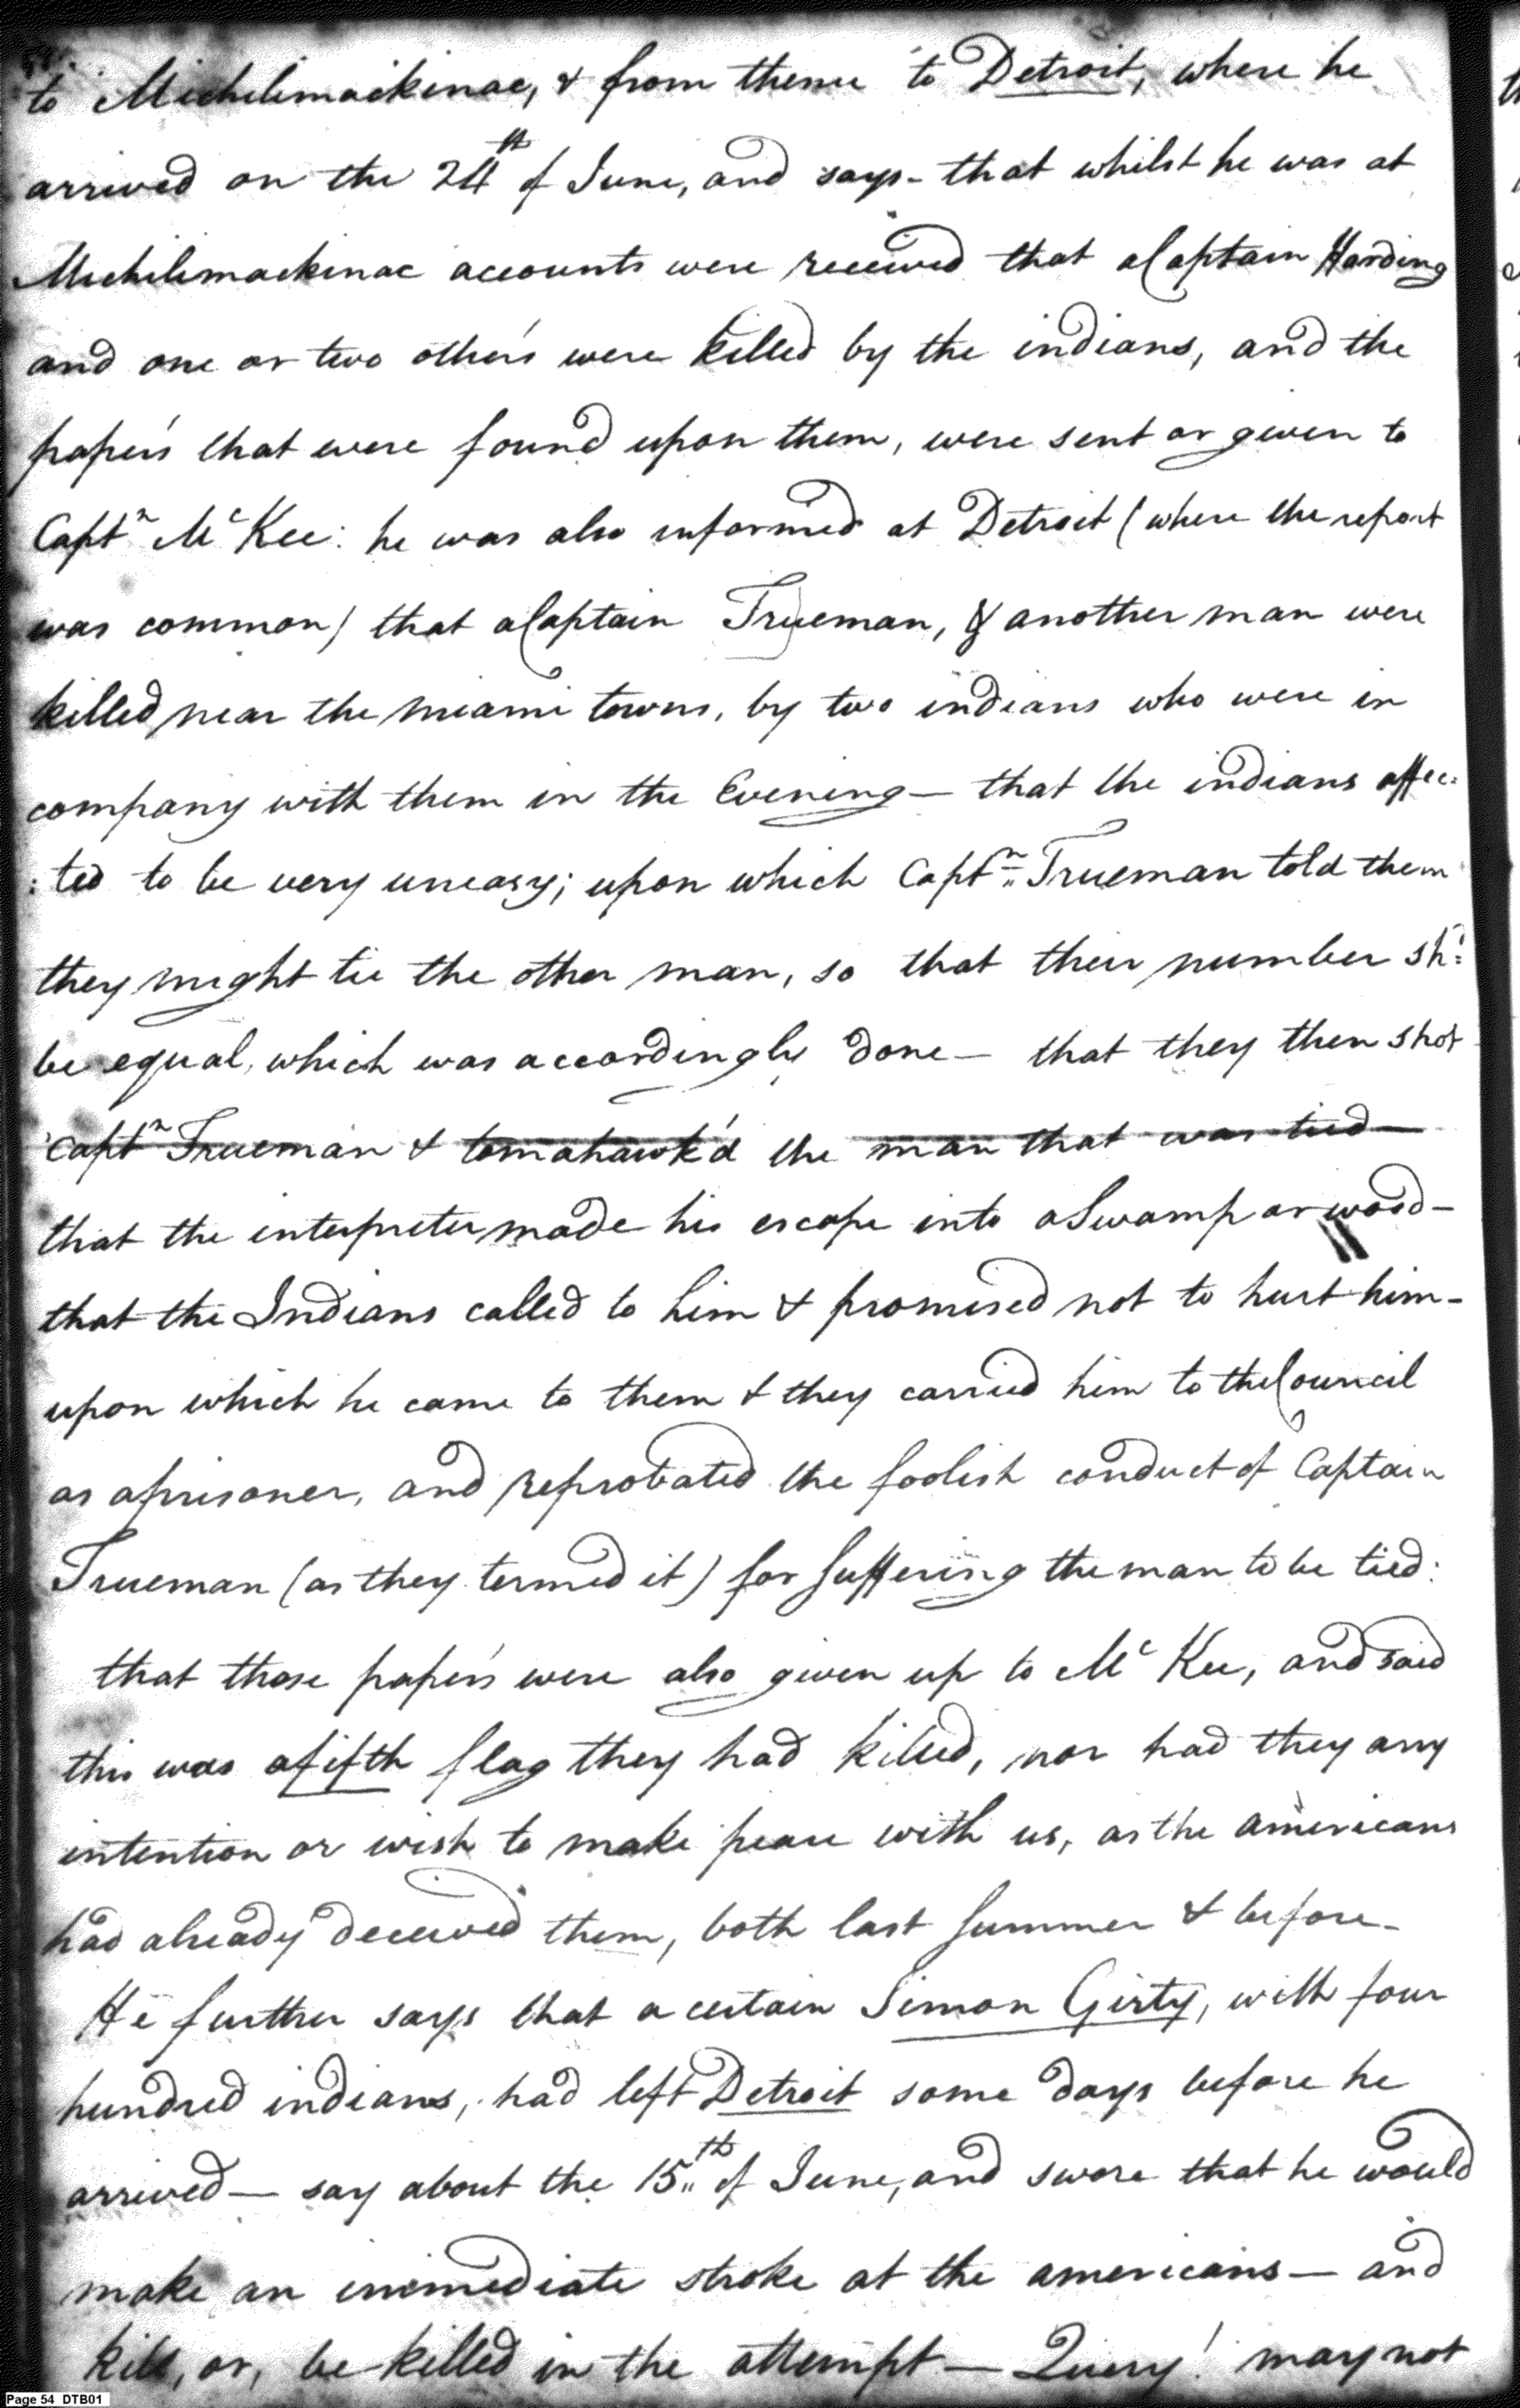 54.
to Michilimackinac, & from thence to Detroit, where he
arrived on the 24th of June, and says - that whilst he was at
Michilimackinac accounts were received that a Captain Harding
and one or two others were killed by the indians, and the
papers that were found upon them, were sent or given to
Captn McKee: he was also informed at Detroit (where the report
was common) that a Captain Trueman, & another man were
killed near the miami towns, by two indians who were in
company with them in the Evening — that the indians affec:
:ted to be very uneasy; upon which Captn Trueman told them
they might tie the other man, so that their number shd:
be equal, which was accordingly done — that they then shot
Captn Trueman & tomahawk'd the man that was tied —
that the interpreter made his escape into a Swamp or wood -
that the Indians called to him & promised not to hurt him -
upon which he came to them & they carried him to the Council
as a prisoner, and reprobated the foolish conduct of Captain
Trueman (as they termed it) for suffering the man to be tied:
that those papers were also given up to McKee, and said
this was a fifth flag they had killed, nor had they any
intention or wish to make peace with us, as the americans
had already deceived them, both last summer & before -
He further says that a certain Simon Girty, with four
hundred indians, had left Detroit some days before he
arrived — say about the 15th of June, and swore that he would
make an immediate stroke at the americans — and
kill, or, be killed in the attempt — Query! may not
Page 54 DTB01